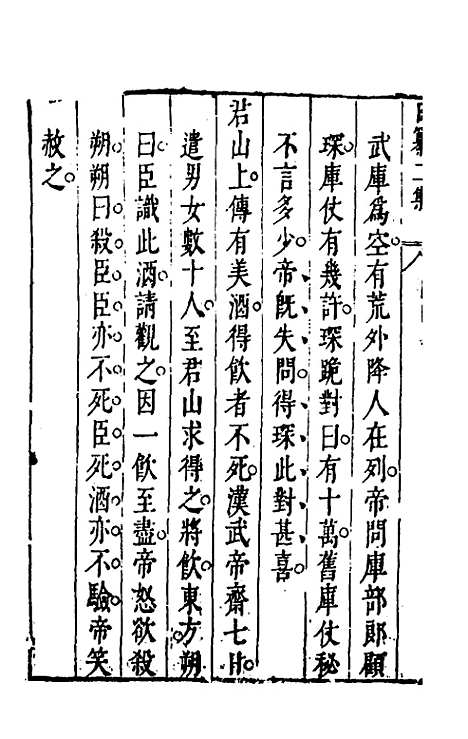 武庫為空有荒外降人在列帝問庫部郎顧
琛庫仗有幾許琛跪對曰有十萬舊庫仗秘
不言多少帝旣失問得琛此對甚喜
君山上傳有美酒得飲者不死漢武帝齋七日
遣男女數十人至君山求得之將飲東方朔
曰臣識此酒請觀之因一飲至盡帝怒欲殺
朔朔曰殺臣臣亦不死臣死酒亦不驗帝笑
赦之